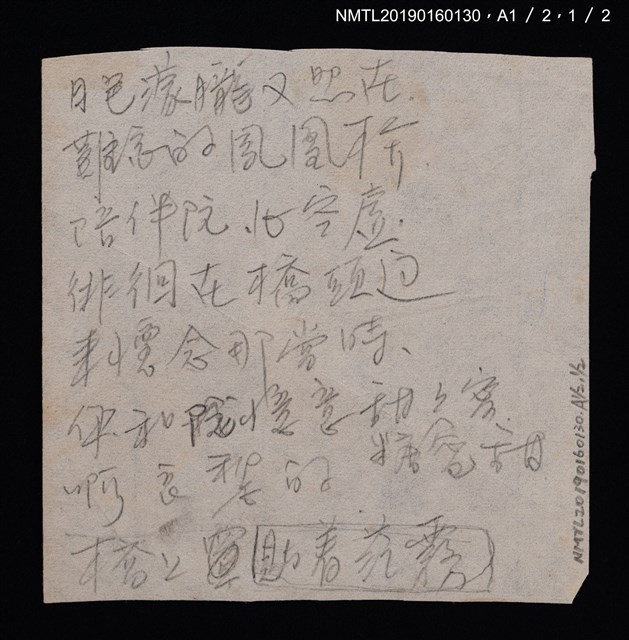 NMTL20190160130，A1 / 2，1 / 2
月色濛朧又照在
難忘的鳳凰橋
陪伴阮心空虛
徘徊在橋頭邊
懷念那當時、
你和 情意甜
糖蜜甜
啊 的
橋上 貼著茫霧
NMTL20190160130.A1/2.1/2